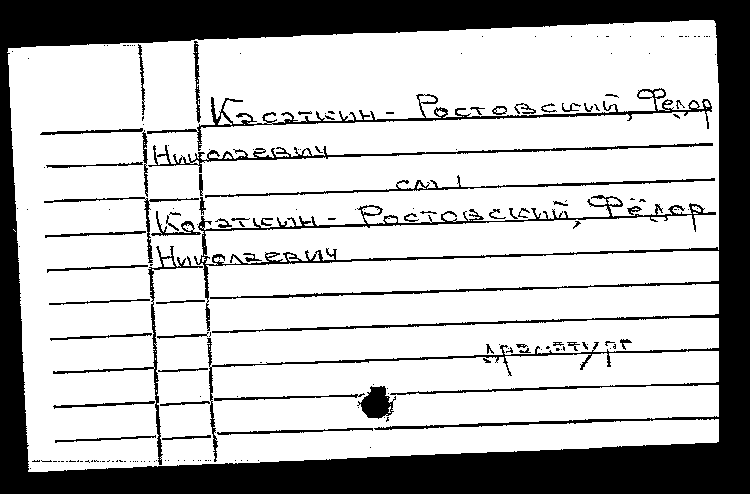 Касаткин - Ростовский, Федор
Николаевич
см.
Косаткин - Ростовский, Фёдор
Николаевич
драматург